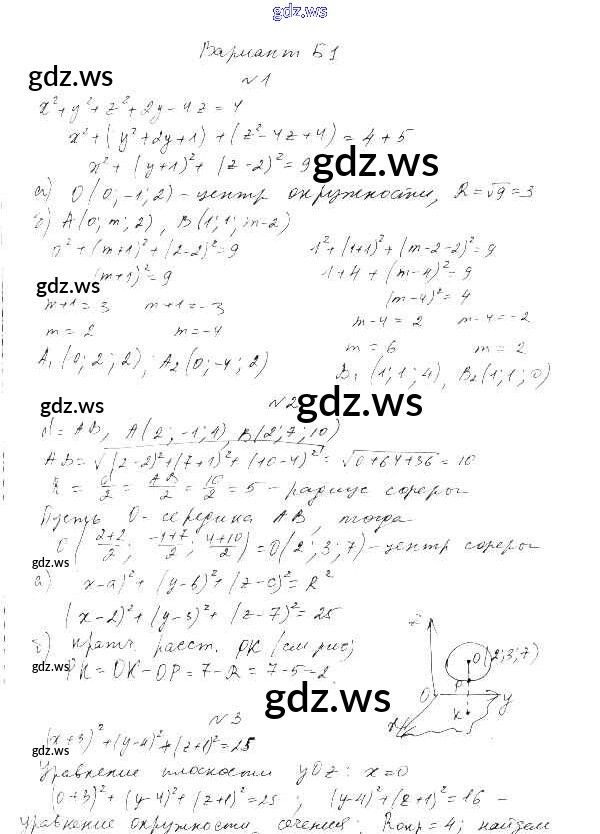 gdz.ws
Вариант Б1
gdz.ws
№1
x²+y²+z²+2y-4z=4
x²+(y²+2y+1)+(z²-4z+4)=4+5
gdz.ws
x²+(y+1)²+(z-2)²=9
а) O(0;-1;2)-центр окружности, R=√9=3
б) A(0;m;2), B(1;1;m-2)
0²+(m+1)²+(2-2)²=9 1²+(1+1)²+(m-2-2)²=9
(m+1)²=9 1+4+(m-4)²=9
gdz.ws
(m-4)²=4
m+1=3 m+1=-3
m-4=2 m-4=-2
m=2 m=-4
m=6 m=2
A₁(0;2;2); A₂(0;-4;2)
B₁(1;1;4), B₂(1;1;0)
gdz.ws
№2
gdz.ws
d=AB, A(2;-1;4), B(2;7;10)
AB=√(2-2)²+(7+1)²+(10-4)²=√0+64+36=10
gdz.ws
R=d/2=AB/2=10/2=5-радиус сферы
Пусть O-середина AB, тогда
O(2+2/2; -1+7/2; 4+10/2)=O(2;3;7)-центр сферы
gdz.ws
а) x-a)²+(y-b)²+(z-c)²=R²
(x-2)²+(y-3)²+(z-7)²=25
б) кратч. расст. PK (см рис)
gdz.ws
PK=OK-OP=7-R=7-5=2.
z
O(2;3;7)
P
O
y
K
x
gdz.ws
№3
(x+3)²+(y-4)²+(z+1)²=25
gdz.ws
Уравнение плоскости yOz: x=0
(0+3)²+(y-4)²+(z+1)²=25; (y-4)²+(z+1)²=16 -
gdz.ws
уравнение окружности сечения; Rокр=4; найдем